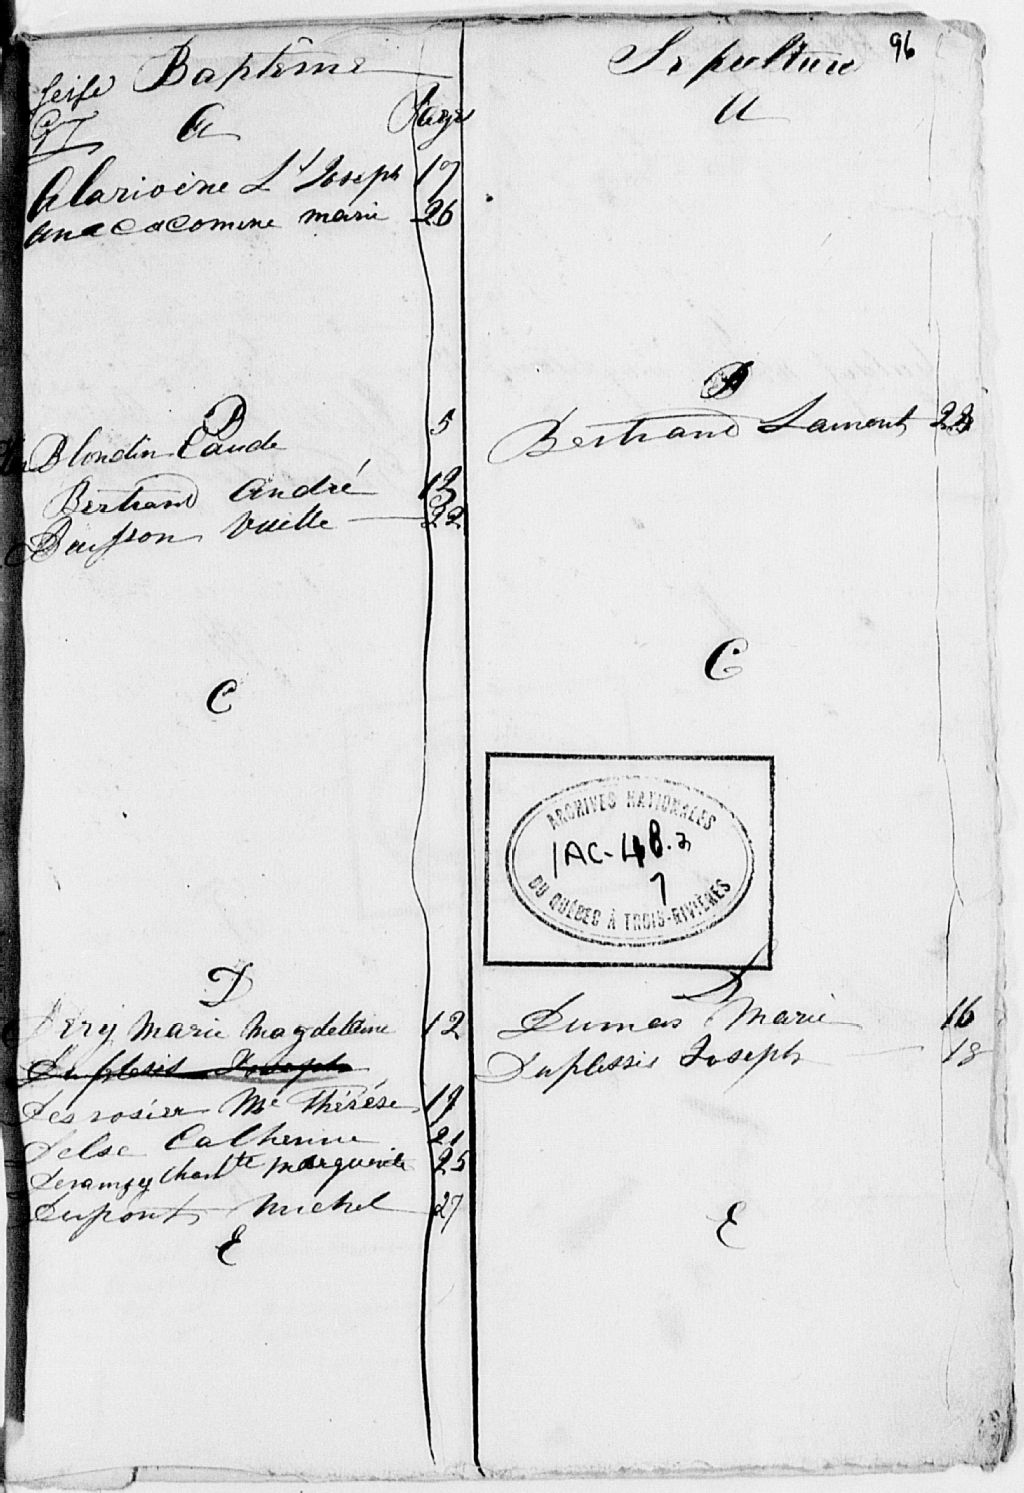 Baptême
Page
A
Alarivière Lt Joseph 17
Anaccacomene marie 26
B
Blondin Claude 5
Bertrand André 13
Buisson 22
C
D
Dery Marie Magdeleine 12
Duplessis Joseph
Desrosier Me Thérése 19
Delse Catherine 21
Deramzy Charltte Marguerite 25
Dupont Michel 27
E
96
Sepulture
A
B
Bertrand Lament
C
ARCHIVES NATIONALES
1AC-48.2
7
DU QUÉBEC À TROIS-RIVIÈRES
D
Dumas Marie 16
Duplessis Joseph 18
E